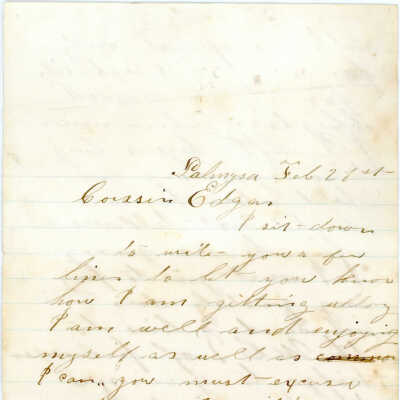 Palmyra Feb 21st
Cousin Edgar
I sit down
to write you a few
lines to let you know
how I am getting along
I am well and enjoying
myself as well as
I can. you must excuse